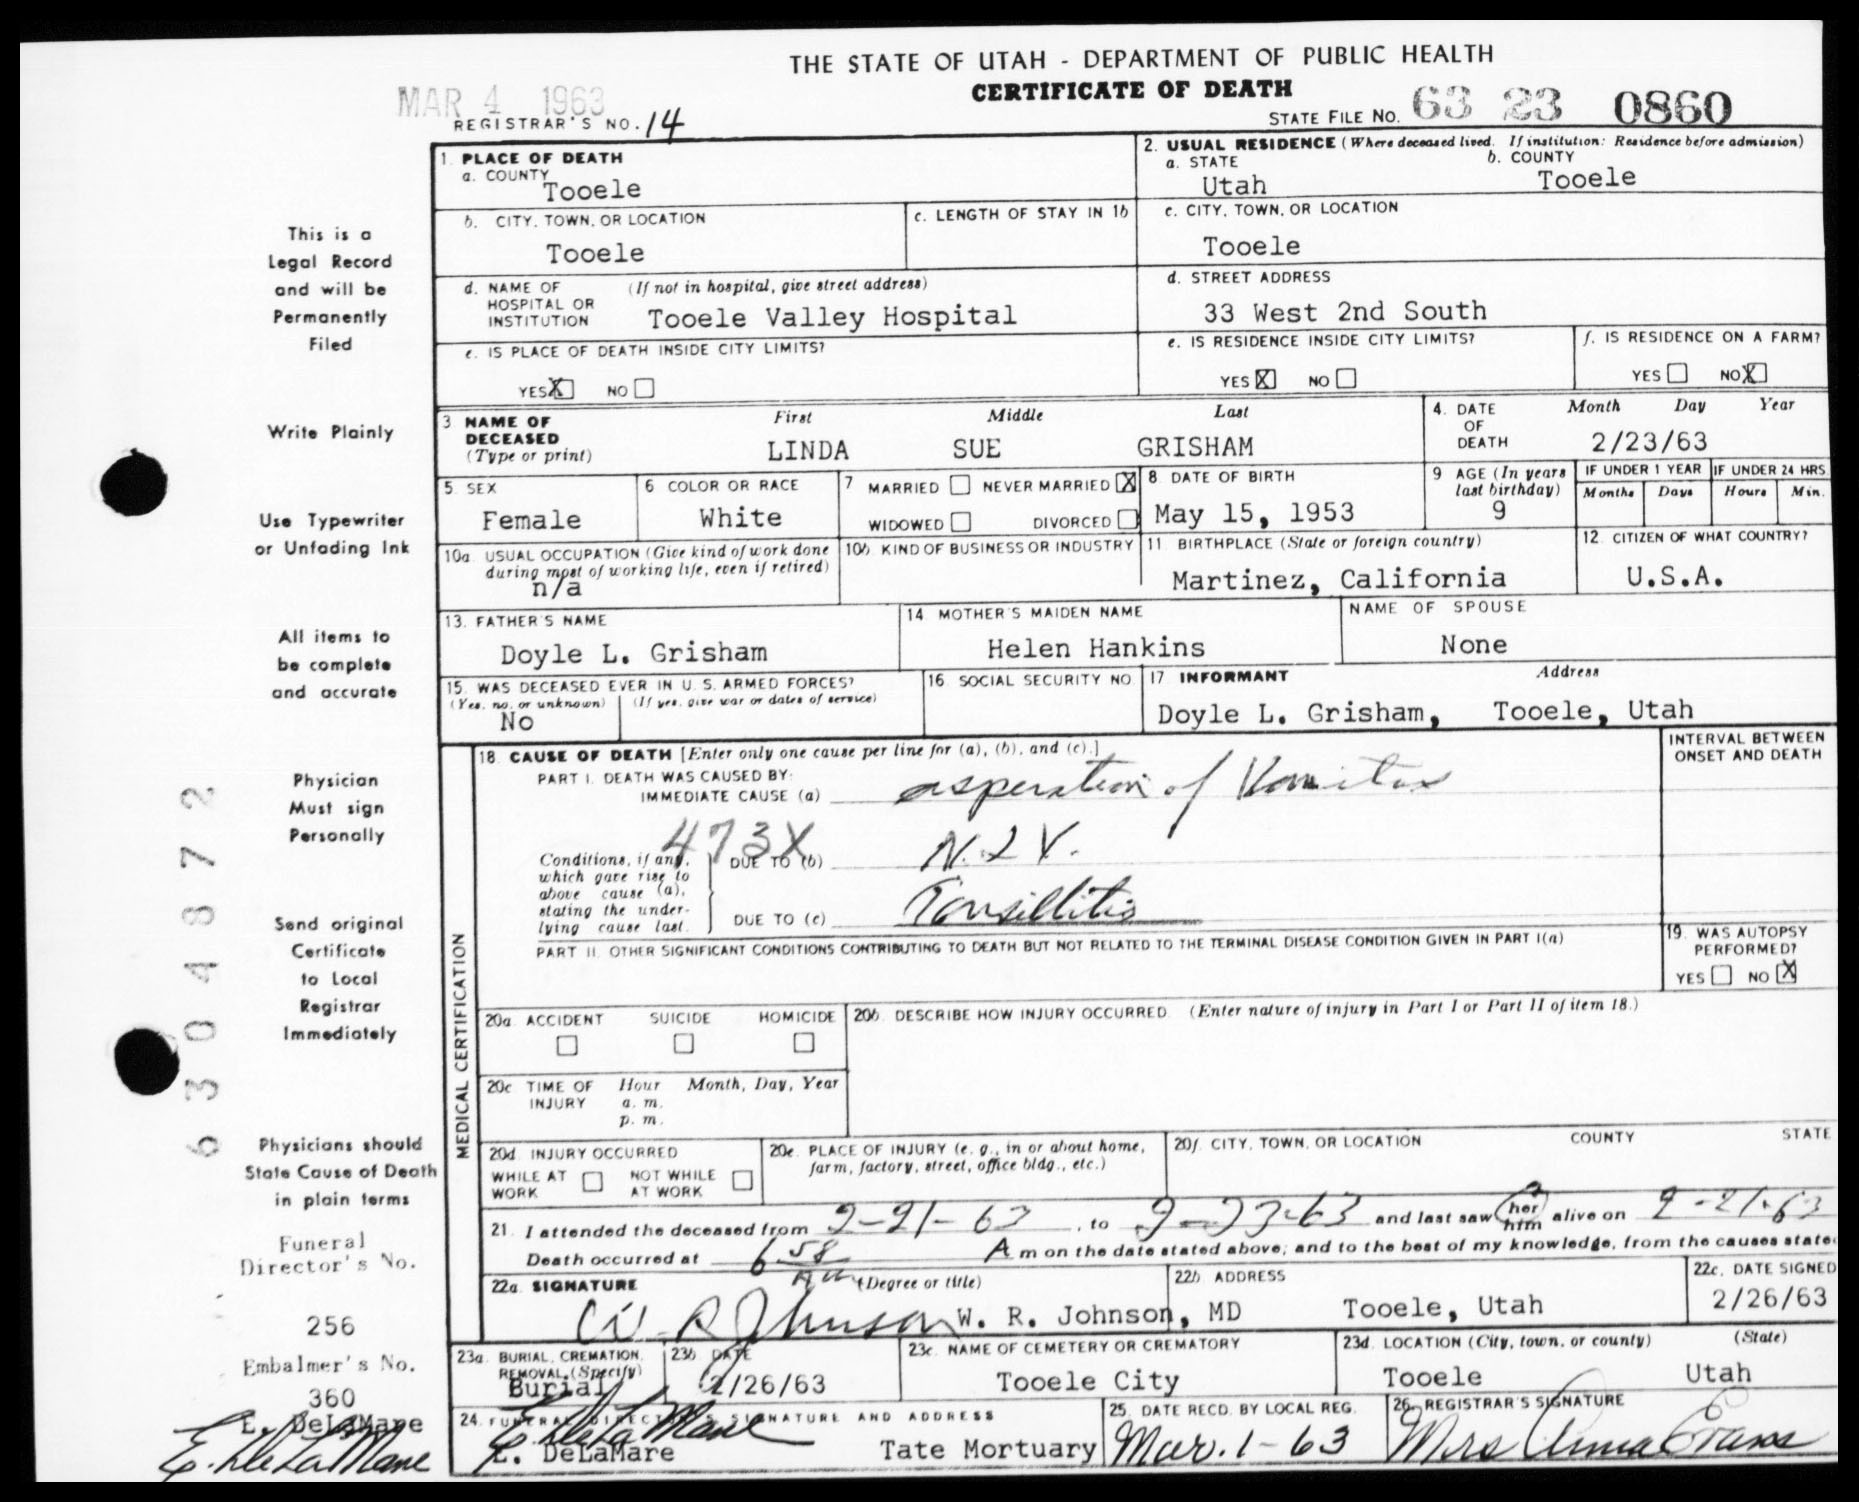 THE STATE OF UTAH - DEPARTMENT OF PUBLIC HEALTH
CERTIFICATE OF DEATH
MAR 4 1963
REGISTRAR'S NO. 14
STATE FILE NO. 63 23 0860
This is a
Legal Record
and will be
Permanently
Filed
Write Plainly
Use Typewriter
or Unfading Ink
All items to
be complete
and accurate
Physician
Must sign
Personally
Send original
Certificate
to Local
Registrar
Immediately
Physicians should
State Cause of Death
in plain terms
Funeral
Director's No.
256
Embalmer's No.
360
E. DeLaMare
E. DeLaMare
6304872
1. PLACE OF DEATH
a. COUNTY
Tooele
2. USUAL RESIDENCE (Where deceased lived. If institution: Residence before admission)
a. STATE b. COUNTY
Utah Tooele
b. CITY, TOWN, OR LOCATION
Tooele
c. LENGTH OF STAY IN 1b
c. CITY, TOWN, OR LOCATION
Tooele
d. NAME OF (If not in hospital, give street address)
HOSPITAL OR
INSTITUTION Tooele Valley Hospital
d. STREET ADDRESS
33 West 2nd South
e. IS PLACE OF DEATH INSIDE CITY LIMITS?
YES X NO
e. IS RESIDENCE INSIDE CITY LIMITS?
YES X NO
f. IS RESIDENCE ON A FARM?
YES NO X
3 NAME OF First Middle Last
DECEASED
(Type or print) LINDA SUE GRISHAM
4. DATE Month Day Year
OF
DEATH 2/23/63
5. SEX
Female
6 COLOR OR RACE
White
7 MARRIED NEVER MARRIED X
WIDOWED DIVORCED
8 DATE OF BIRTH
May 15, 1953
9 AGE (In years
last birthday)
9
IF UNDER 1 YEAR IF UNDER 24 HRS.
Months Days Hours Min.
10a. USUAL OCCUPATION (Give kind of work done
during most of working life, even if retired)
n/a
10b. KIND OF BUSINESS OR INDUSTRY
11 BIRTHPLACE (State or foreign country)
Martinez, California
12. CITIZEN OF WHAT COUNTRY?
U.S.A.
13. FATHER'S NAME
Doyle L. Grisham
14 MOTHER'S MAIDEN NAME
Helen Hankins
NAME OF SPOUSE
None
15. WAS DECEASED EVER IN U. S. ARMED FORCES?
(Yes, no, or unknown) (If yes, give war or dates of service)
No
16. SOCIAL SECURITY NO
17 INFORMANT Address
Doyle L. Grisham, Tooele, Utah
MEDICAL CERTIFICATION
18. CAUSE OF DEATH [Enter only one cause per line for (a), (b), and (c).]
INTERVAL BETWEEN
ONSET AND DEATH
PART I. DEATH WAS CAUSED BY:
IMMEDIATE CAUSE (a) asperation of Vomitus
473X
Conditions, if any,
which gave rise to
above cause (a),
stating the under-
lying cause last.
DUE TO (b)
DUE TO (c) Tonsillitis
PART II. OTHER SIGNIFICANT CONDITIONS CONTRIBUTING TO DEATH BUT NOT RELATED TO THE TERMINAL DISEASE CONDITION GIVEN IN PART I(a)
19. WAS AUTOPSY
PERFORMED?
YES NO X
20a. ACCIDENT SUICIDE HOMICIDE
20b. DESCRIBE HOW INJURY OCCURRED. (Enter nature of injury in Part I or Part II of item 18.)
20c TIME OF Hour Month, Day, Year
INJURY a. m.
p. m.
20d. INJURY OCCURRED
WHILE AT NOT WHILE
WORK AT WORK
20e. PLACE OF INJURY (e. g., in or about home,
farm, factory, street, office bldg., etc.)
20f. CITY, TOWN, OR LOCATION COUNTY STATE
21. I attended the deceased from 2-21-63, to 2-23-63 and last saw her him alive on 2-21-63
Death occurred at 6 58 AM A m on the date stated above; and to the best of my knowledge, from the causes state
22a. SIGNATURE (Degree or title)
W. R. Johnson W. R. Johnson, MD
22b. ADDRESS
Tooele, Utah
22c. DATE SIGNED
2/26/63
23a. BURIAL, CREMATION,
REMOVAL, (Specify)
Burial
23b. DATE
2/26/63
23c. NAME OF CEMETERY OR CREMATORY
Tooele City
23d. LOCATION (City, town, or county) (State)
Tooele Utah
24. FUNERAL DIRECTOR'S SIGNATURE AND ADDRESS
E. DeLaMare
E. DeLaMare Tate Mortuary
25. DATE RECD. BY LOCAL REG.
Mar. 1-63
26. REGISTRAR'S SIGNATURE
Mrs Anna Evans